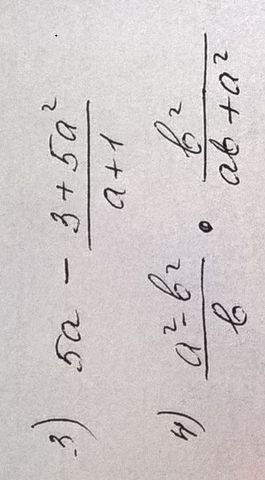 3) 5a - (3 + 5a²)/(a + 1)
4) (a² - b²)/b · b²/(ab + a²)